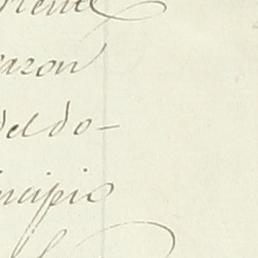 mente
razon
del do-
ncipio